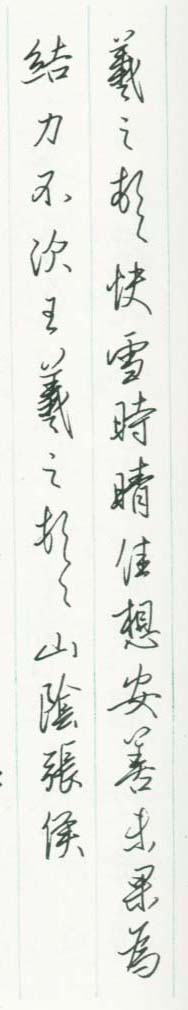 羲之頓首快雪時晴佳想安善未果為
結力不次王羲之頓首山陰張侯